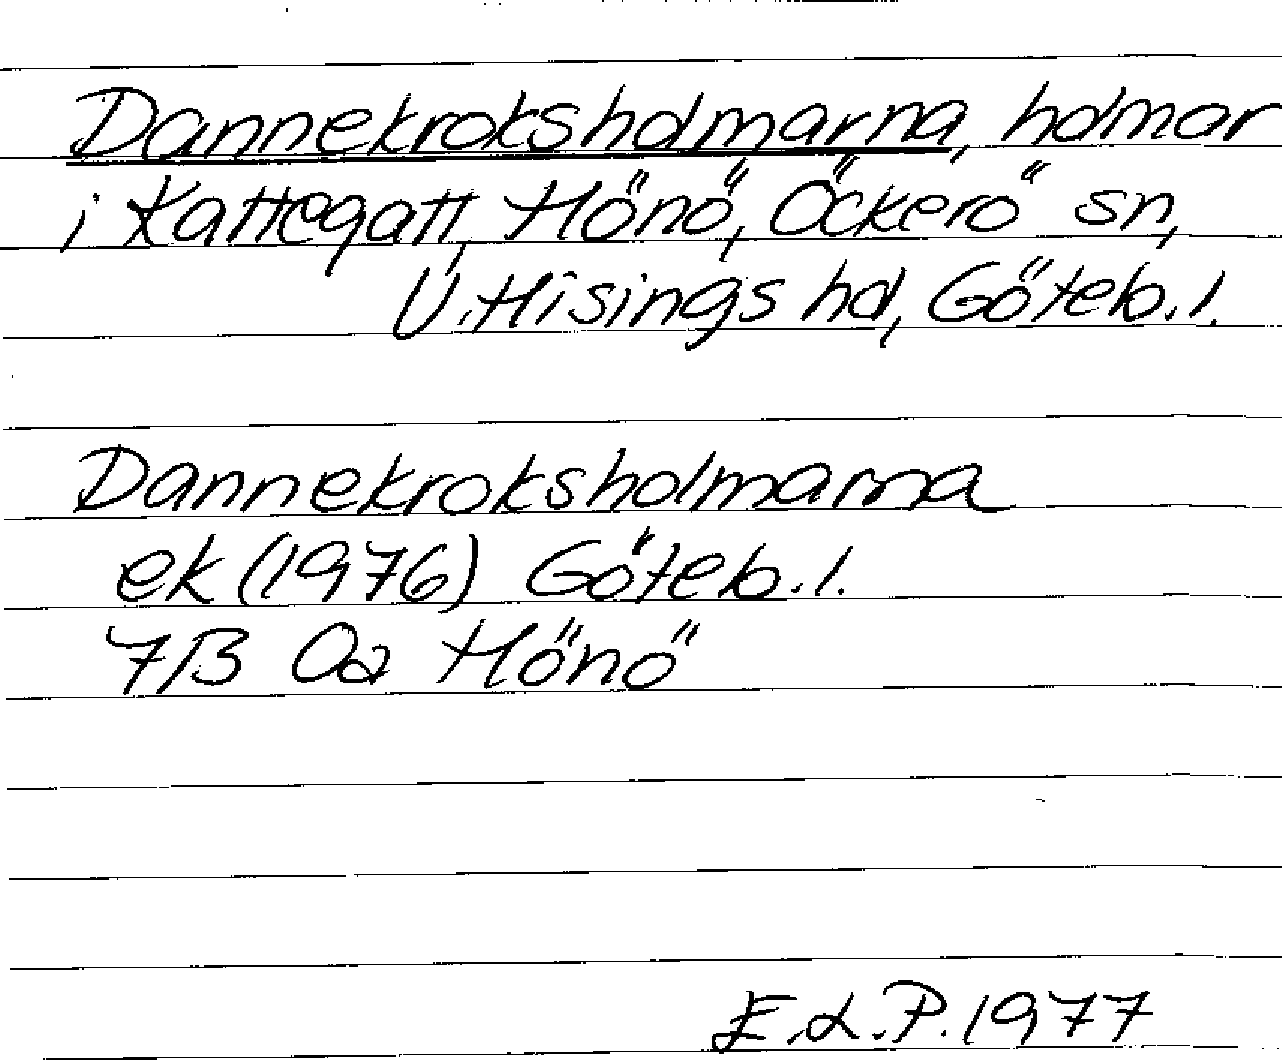 Dannekroksholmarna, holmar
i Kattegatt, Hönö, Öckerö sn,
V. Hisings hd, Göteb. l.
Dannekroksholmarna
ek (1976) Göteb. l.
7B 0a Hönö
E.L.P. 1977